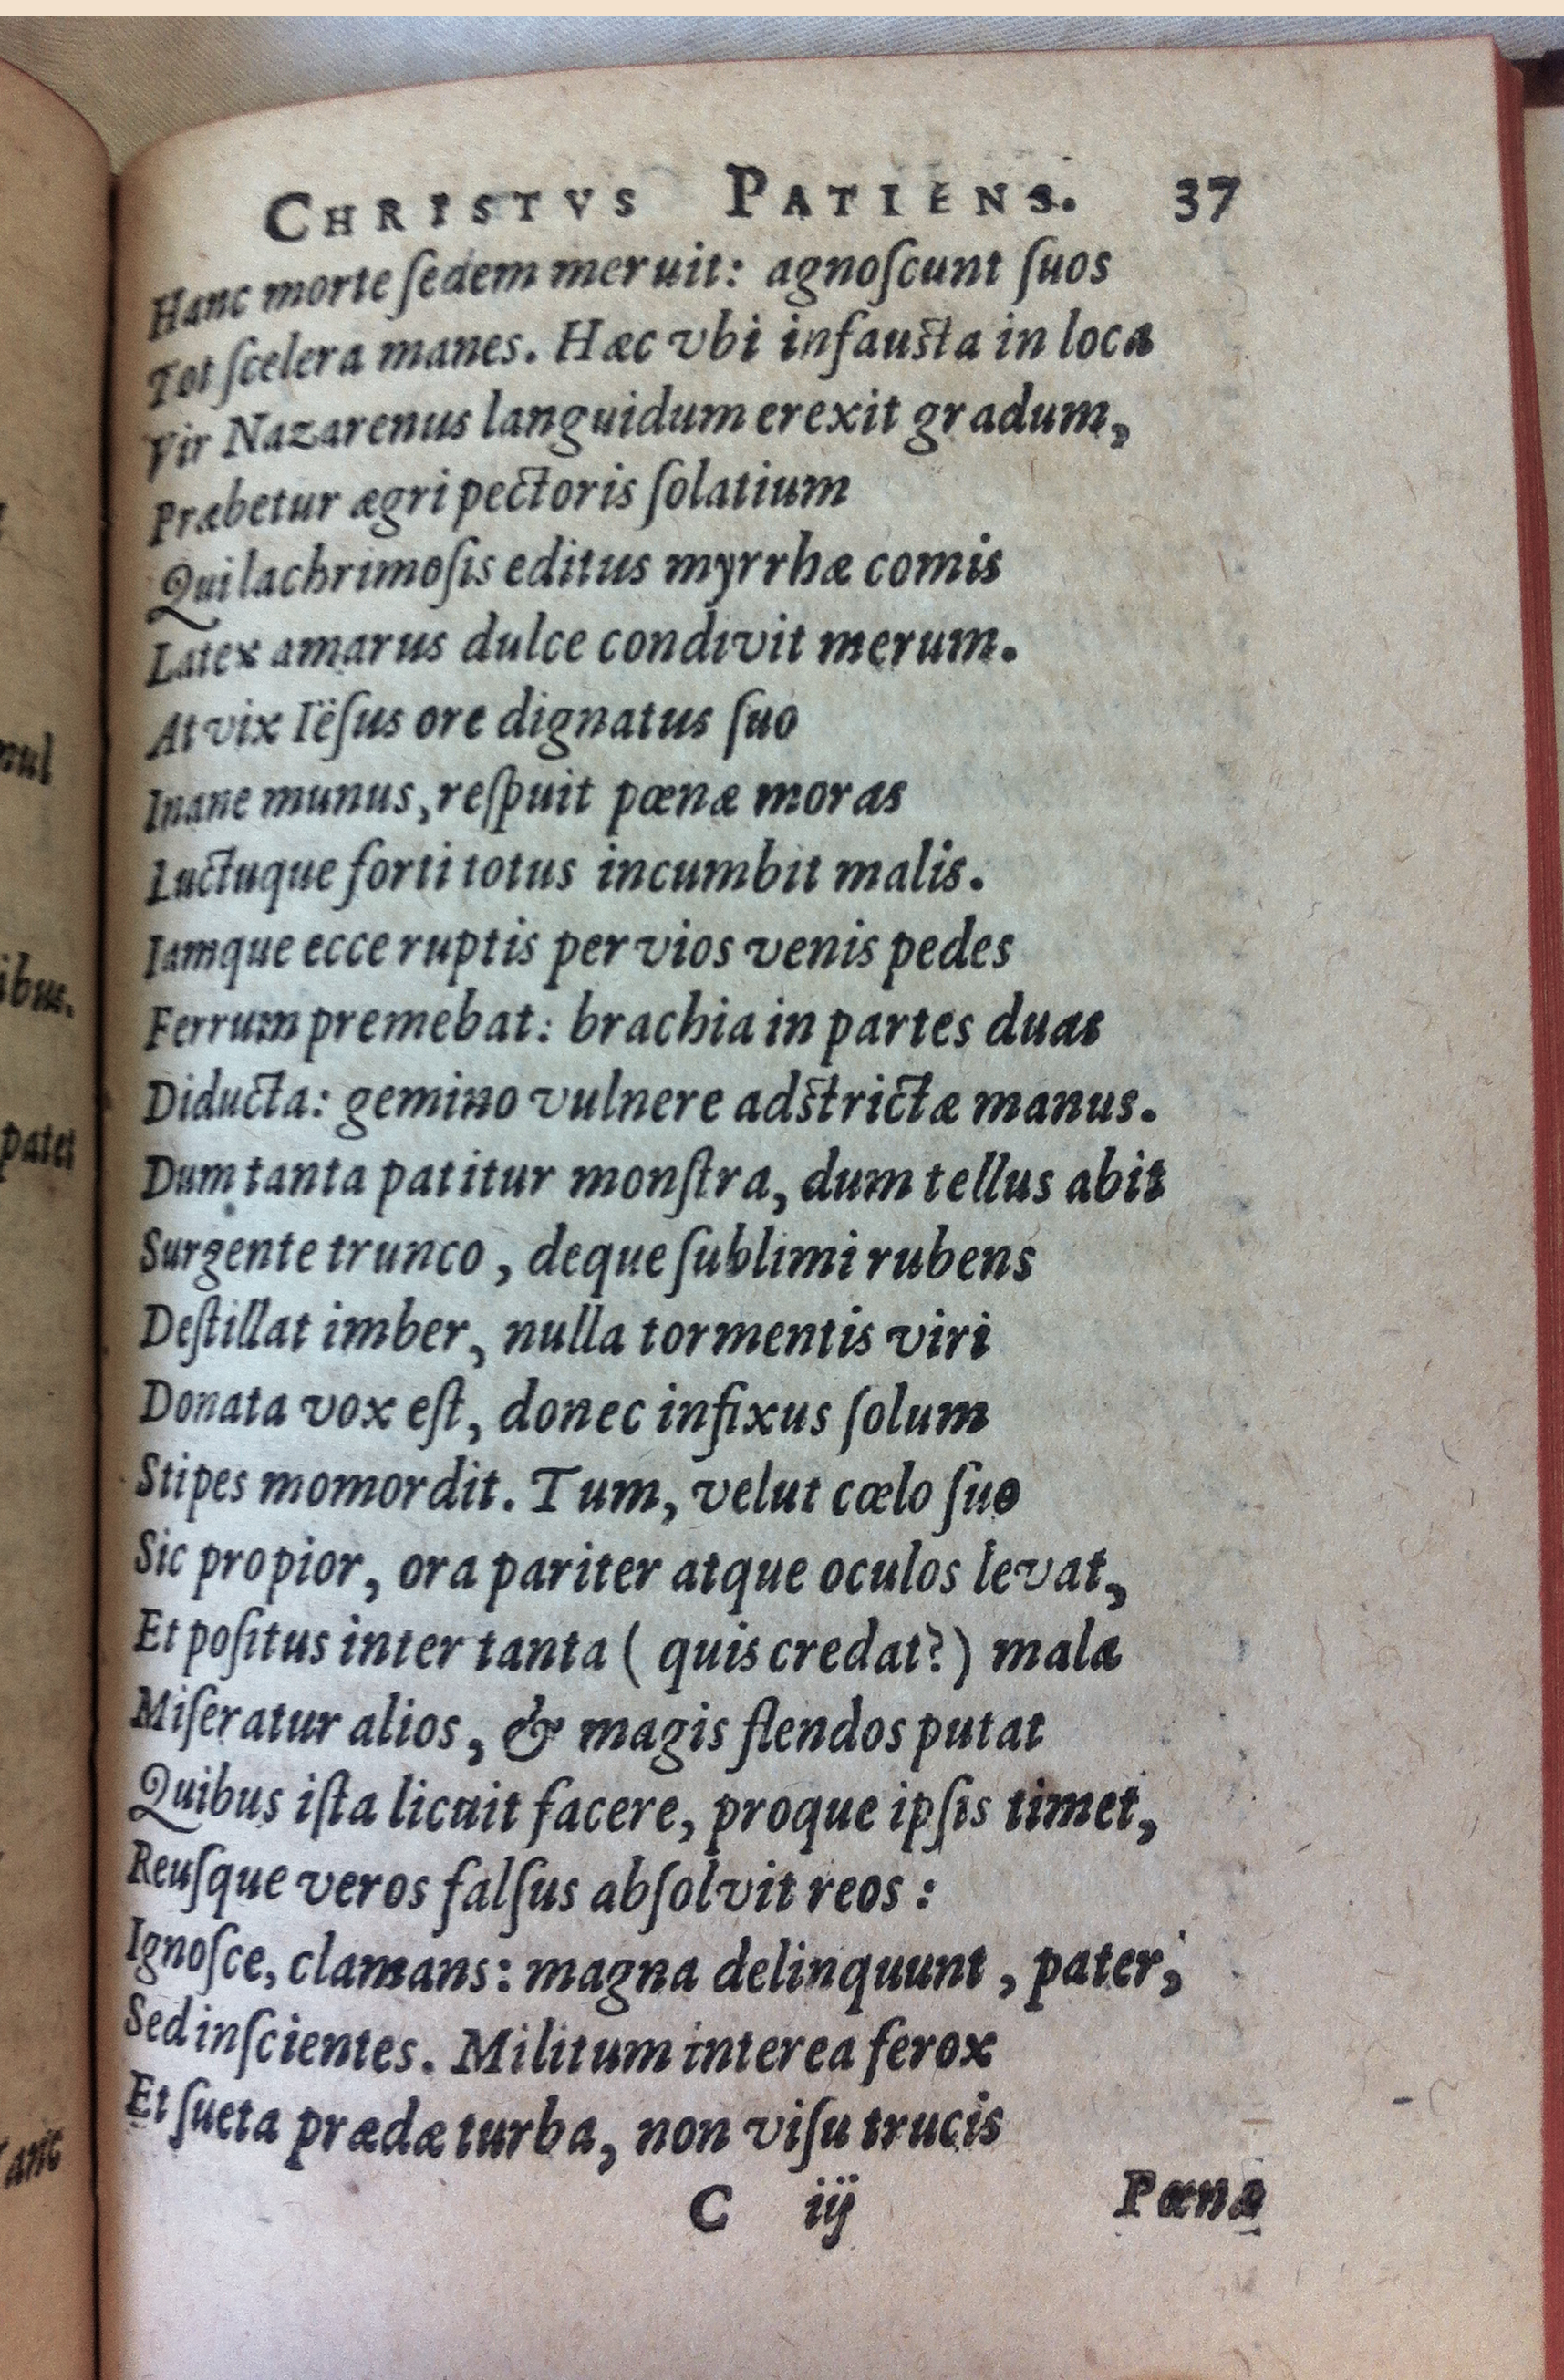 CHRISTVS PATIENS. 37
Hanc morte ſedem meruit: agnoſcunt ſuos
Tot ſcelera manes. Hæc vbi infauſta in loca
Vir Nazarenus languidum erexit gradum,
Præbetur ægri pectoris ſolatium
Qui lachrimoſis editus myrrhæ comis
Latex amarus dulce condivit merum.
At vix Iëſus ore dignatus ſuo
Inane munus, reſpuit pœnæ moras
Luctuque forti totus incumbit malis.
Iamque ecce ruptis pervios venis pedes
Ferrum premebat: brachia in partes duas
Diducta: gemino vulnere adſtrictæ manus.
Dum tanta patitur monſtra, dum tellus abit
Surgente trunco, deque ſublimi rubens
Deſtillat imber, nulla tormentis viri
Donata vox eſt, donec infixus ſolum
Stipes momordit. Tum, velut cœlo ſuo
Sic propior, ora pariter atque oculos levat,
Et poſitus inter tanta ( quis credat?) mala
Miſeratur alios, & magis flendos putat
Quibus iſta licuit facere, proque ipſis timet,
Reuſque veros falſus abſolvit reos:
Ignoſce, clamans: magna delinquunt, pater,
Sed inſcientes. Militum interea ferox
Et ſueta prædæ turba, non viſu trucis
C iij Pœnæ
mul
ibus.
patet